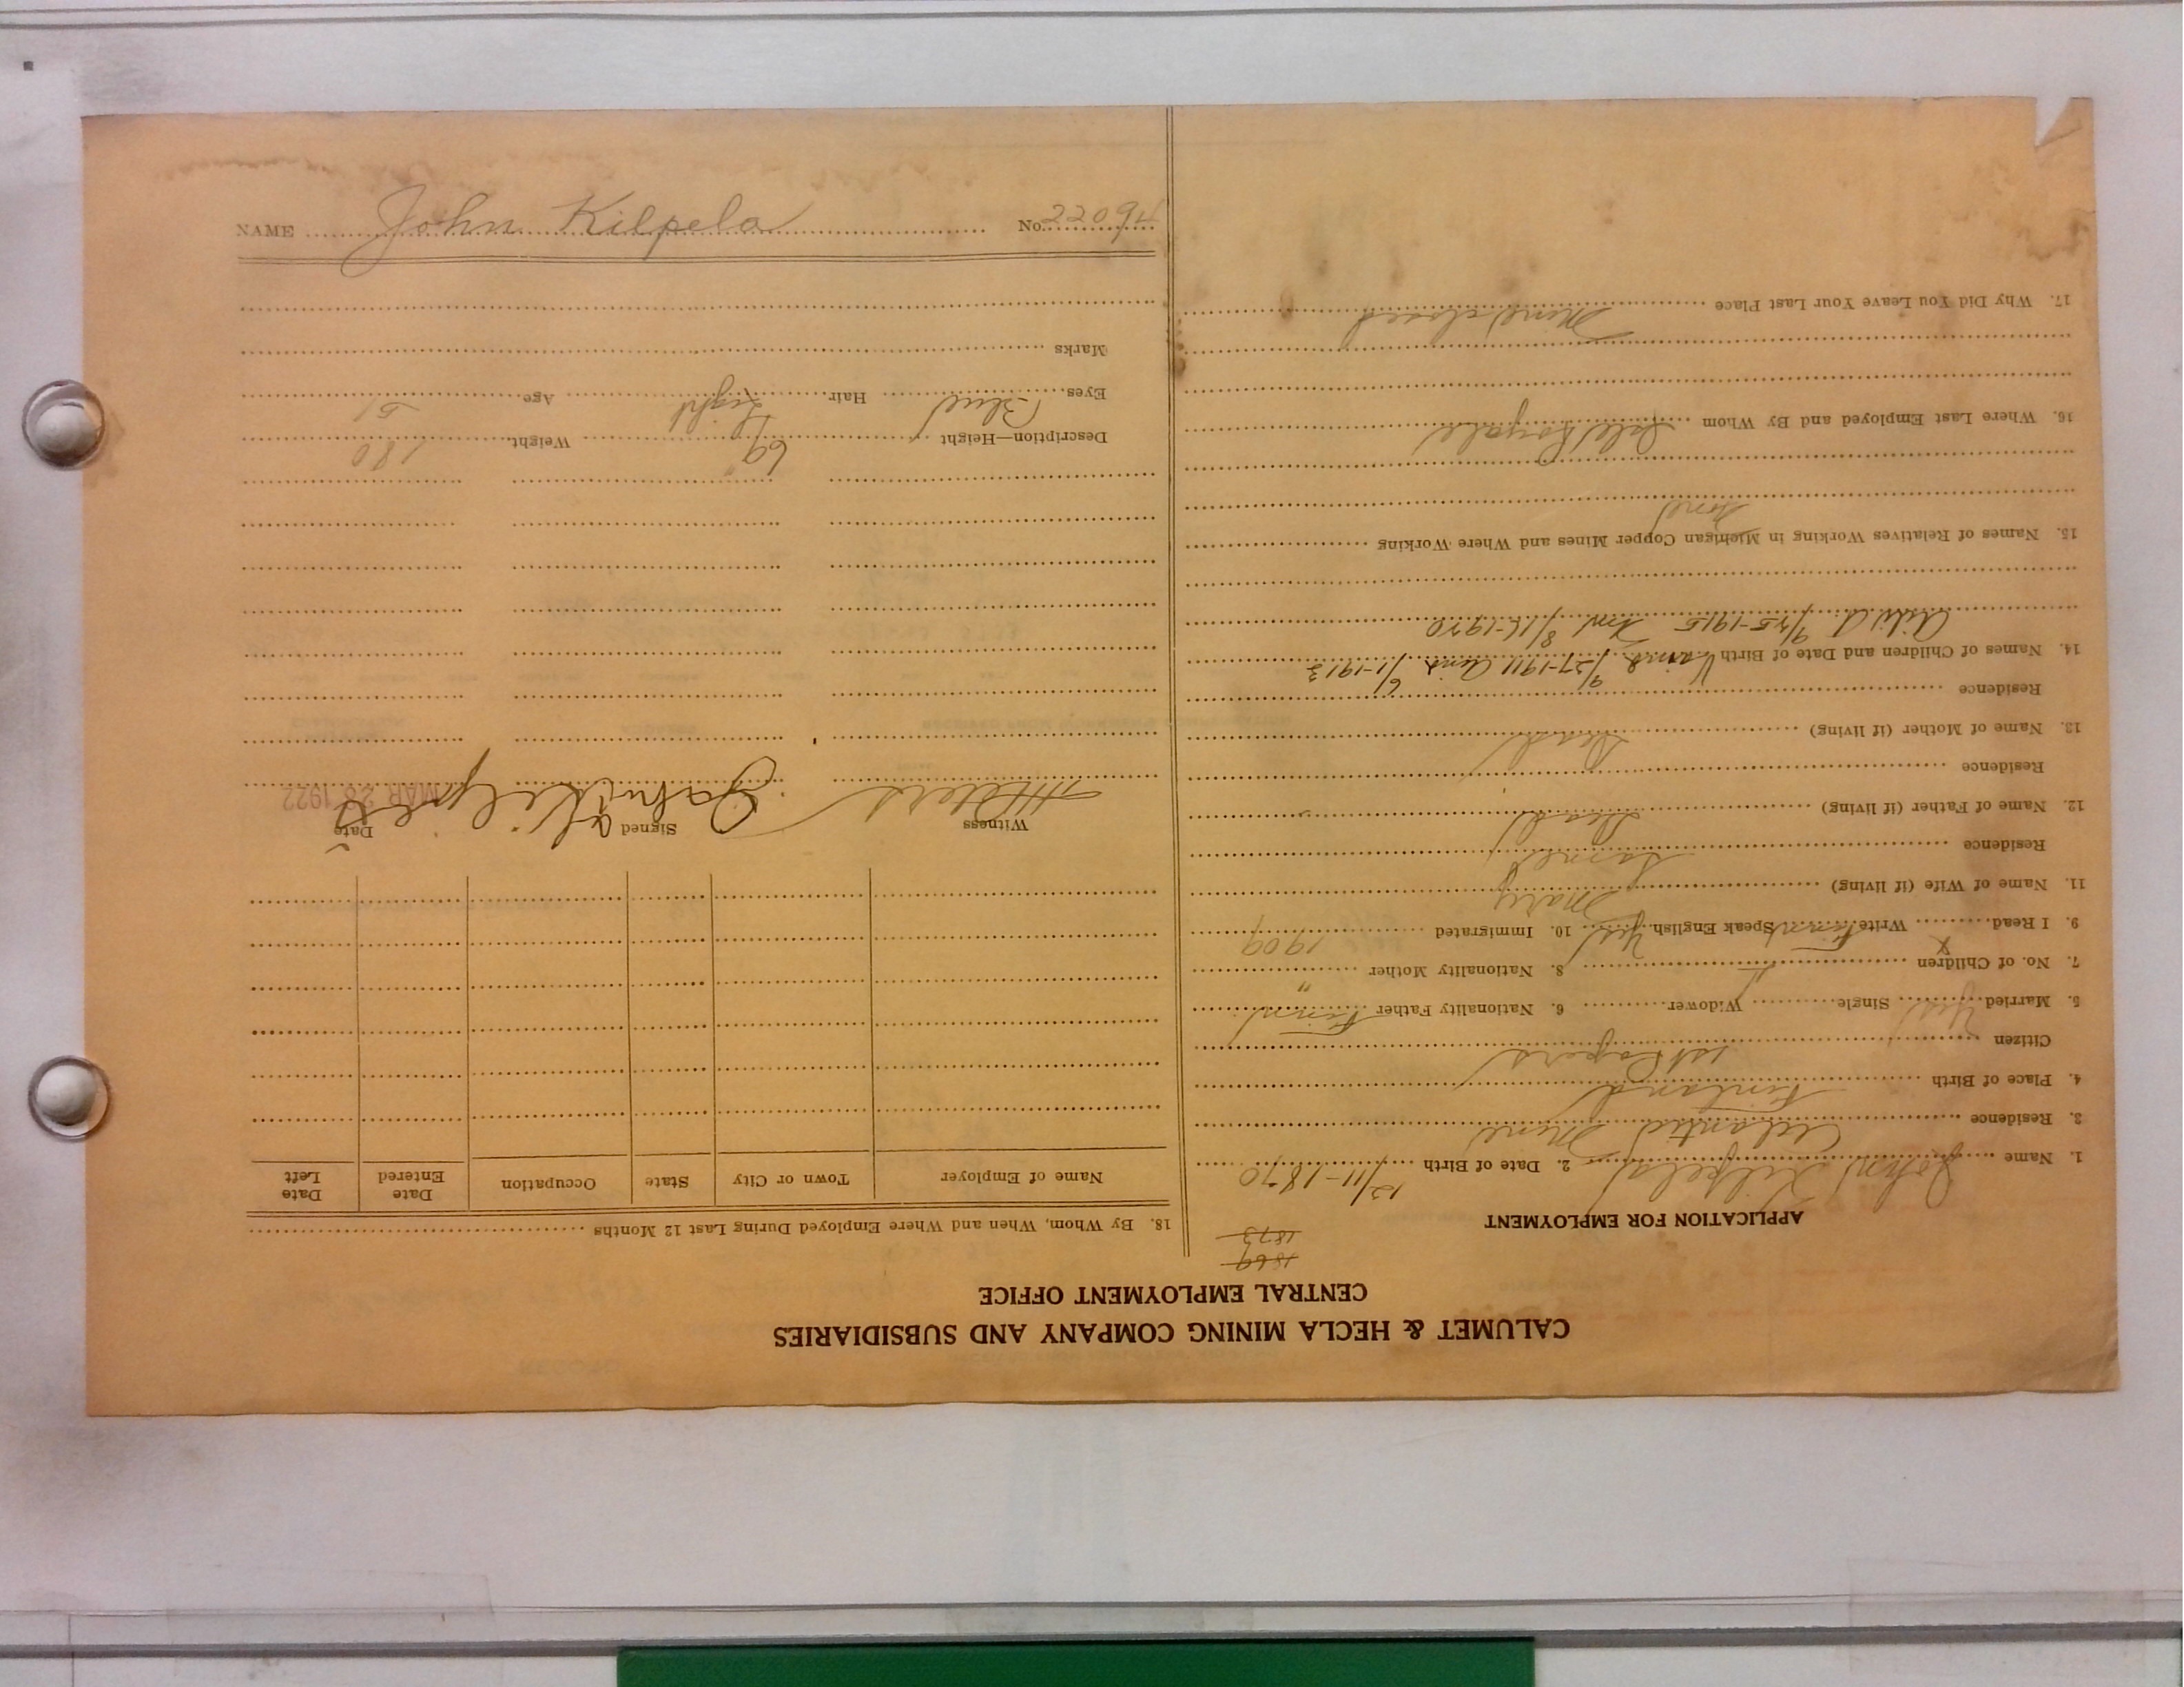 CALUMET & HECLA MINING COMPANY AND SUBSIDIARIES
CENTRAL EMPLOYMENT OFFICE
1869
1873
APPLICATION FOR EMPLOYMENT
1. Name John Kilpela 2. Date of Birth 12/11-1870
3. Residence Atlantic Mine
4. Place of Birth Finland
Citizen 1st Papers
5. Married Yes Single Widower 6. Nationality Father Finn
7. No. of Children 4 8. Nationality Mother "
9. I Read X Write Finn Speak English Yes 10. Immigrated 1909
11. Name of Wife (if living) Mary
Residence Same
12. Name of Father (if living) Dead
Residence
13. Name of Mother (if living) Dead
Residence
14. Names of Children and Date of Birth 9/27-1911 6/11-1913
9/25-1915 8/16-1920
15. Names of Relatives Working in Michigan Copper Mines and Where Working
None
16. Where Last Employed and By Whom Isle Royale
17. Why Did You Leave Your Last Place Mine closed
18. By Whom, When and Where Employed During Last 12 Months
Name of Employer Town or City State Occupation Date Entered Date Left
Witness Signed Date
John Kilpela MAR 28 1922
Description—Height 69" Weight 180
Eyes Blue Hair Light Age 51
Marks
NAME John Kilpela No. 22094